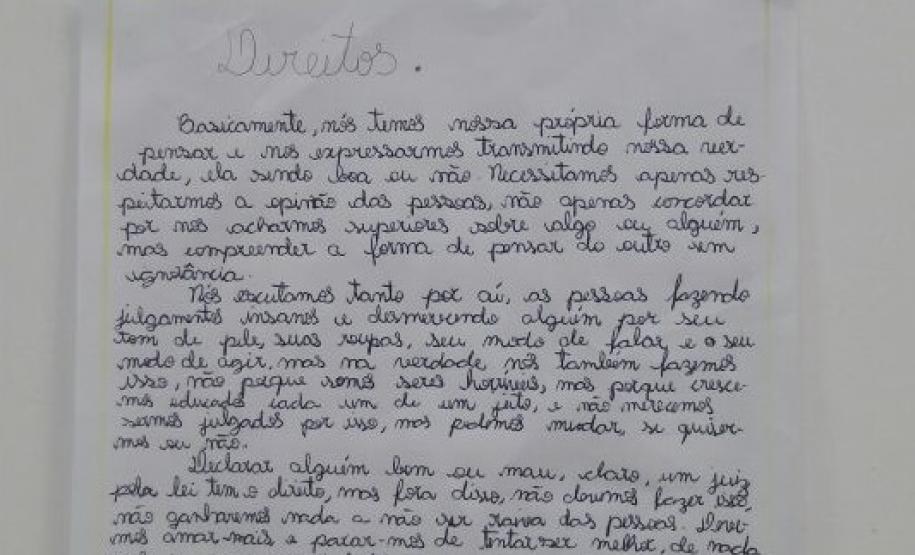 Direitos.
Basicamente, nós temos nossa própria forma de
pensar e nos expressarmos transmitindo nossa ver-
dade, ela sendo boa ou não. Necessitamos apenas res-
peitarmos a opinião das pessoas, não apenas concordar
por nos acharmos superiores sobre algo ou alguém,
mas compreender a forma de pensar do outro sem
ignorância.
Nós escutamos tanto por aí, as pessoas fazendo
julgamentos insanos e desmerecendo alguém por seu
tom de pele, suas roupas, seu modo de falar, e o seu
modo de agir, mas na verdade nós também fazemos
isso, não porque somos seres horríveis, mas porque cresce-
mos educados cada um de um jeito, e não merecemos
sermos julgados por isso, mas podemos mudar, se quiser-
mos ou não.
Declarar alguém bom ou mau, claro, um juiz
pela lei tem o direito, mas fora disso, não devemos fazer isso,
não ganharemos nada a não ser raiva das pessoas. Deve-
mos amar mais e parar-mos de tentar ser melhor, de nada